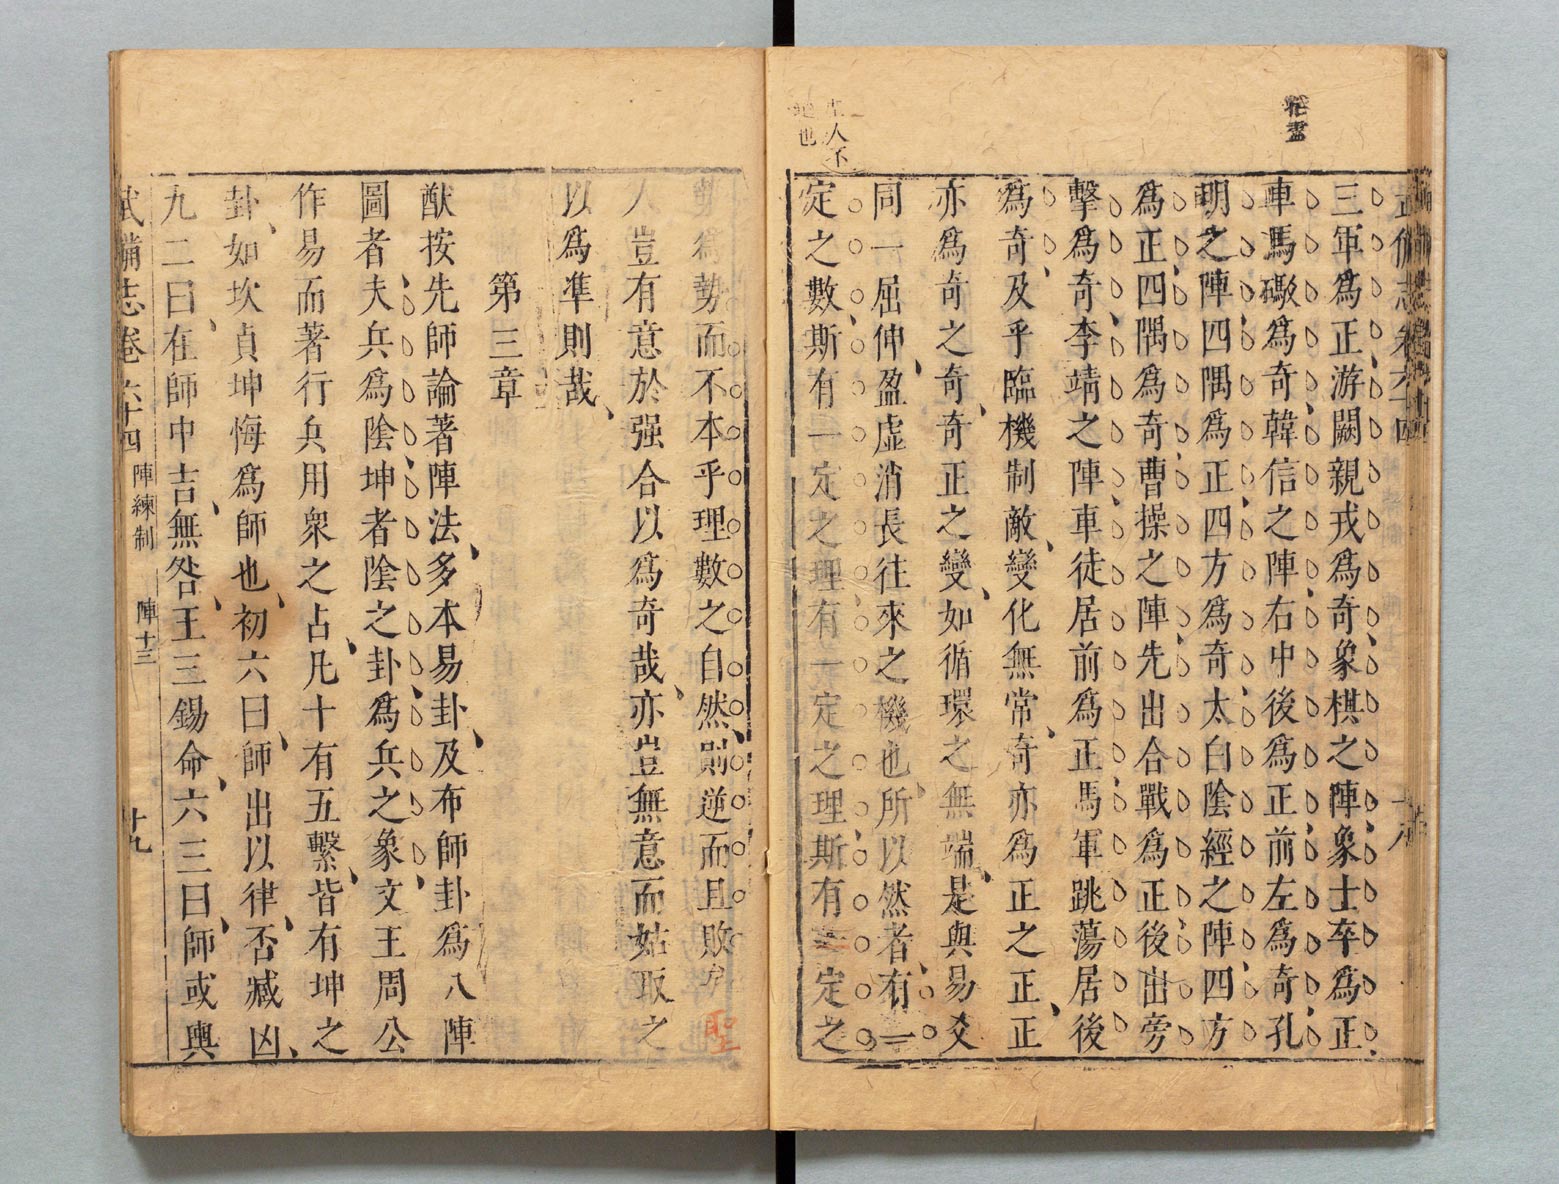 三軍爲正游闕親戎爲奇象棋之陣象士卒爲正
車馬礮爲奇韓信之陣右中後爲正前左爲奇孔
明之陣四隅爲正四方爲奇太白陰經之陣四方
爲正四隅爲奇曹操之陣先出合戰爲正後出旁
擊爲奇李靖之陣車徒居前爲正馬軍跳蕩居後
爲奇及乎臨機制敵變化無常奇亦爲正之正正
亦爲奇之奇奇正之變如循環之無端是與易爻
同一屈伸盈虛消長往來之機也所以然者有一
定之數斯有一定之理有一定之理斯有一定之
勢爲勢而不本乎理數之自然則逆而且敗聖
人豈有意於强合以爲奇哉亦豈無意而姑取之
以爲準則哉
第三章
猷按先師論著陣法多本易卦及布師卦爲八陣
圖者夫兵爲陰坤者陰之卦爲兵之象文王周公
作易而著行兵用衆之占凡十有五繫皆有坤之
卦如坎貞坤悔爲師也初六曰師出以律否臧凶
九二曰在師中吉無咎王三錫命六三曰師或輿
武備志卷六十四 陣練制 陣十三 十九